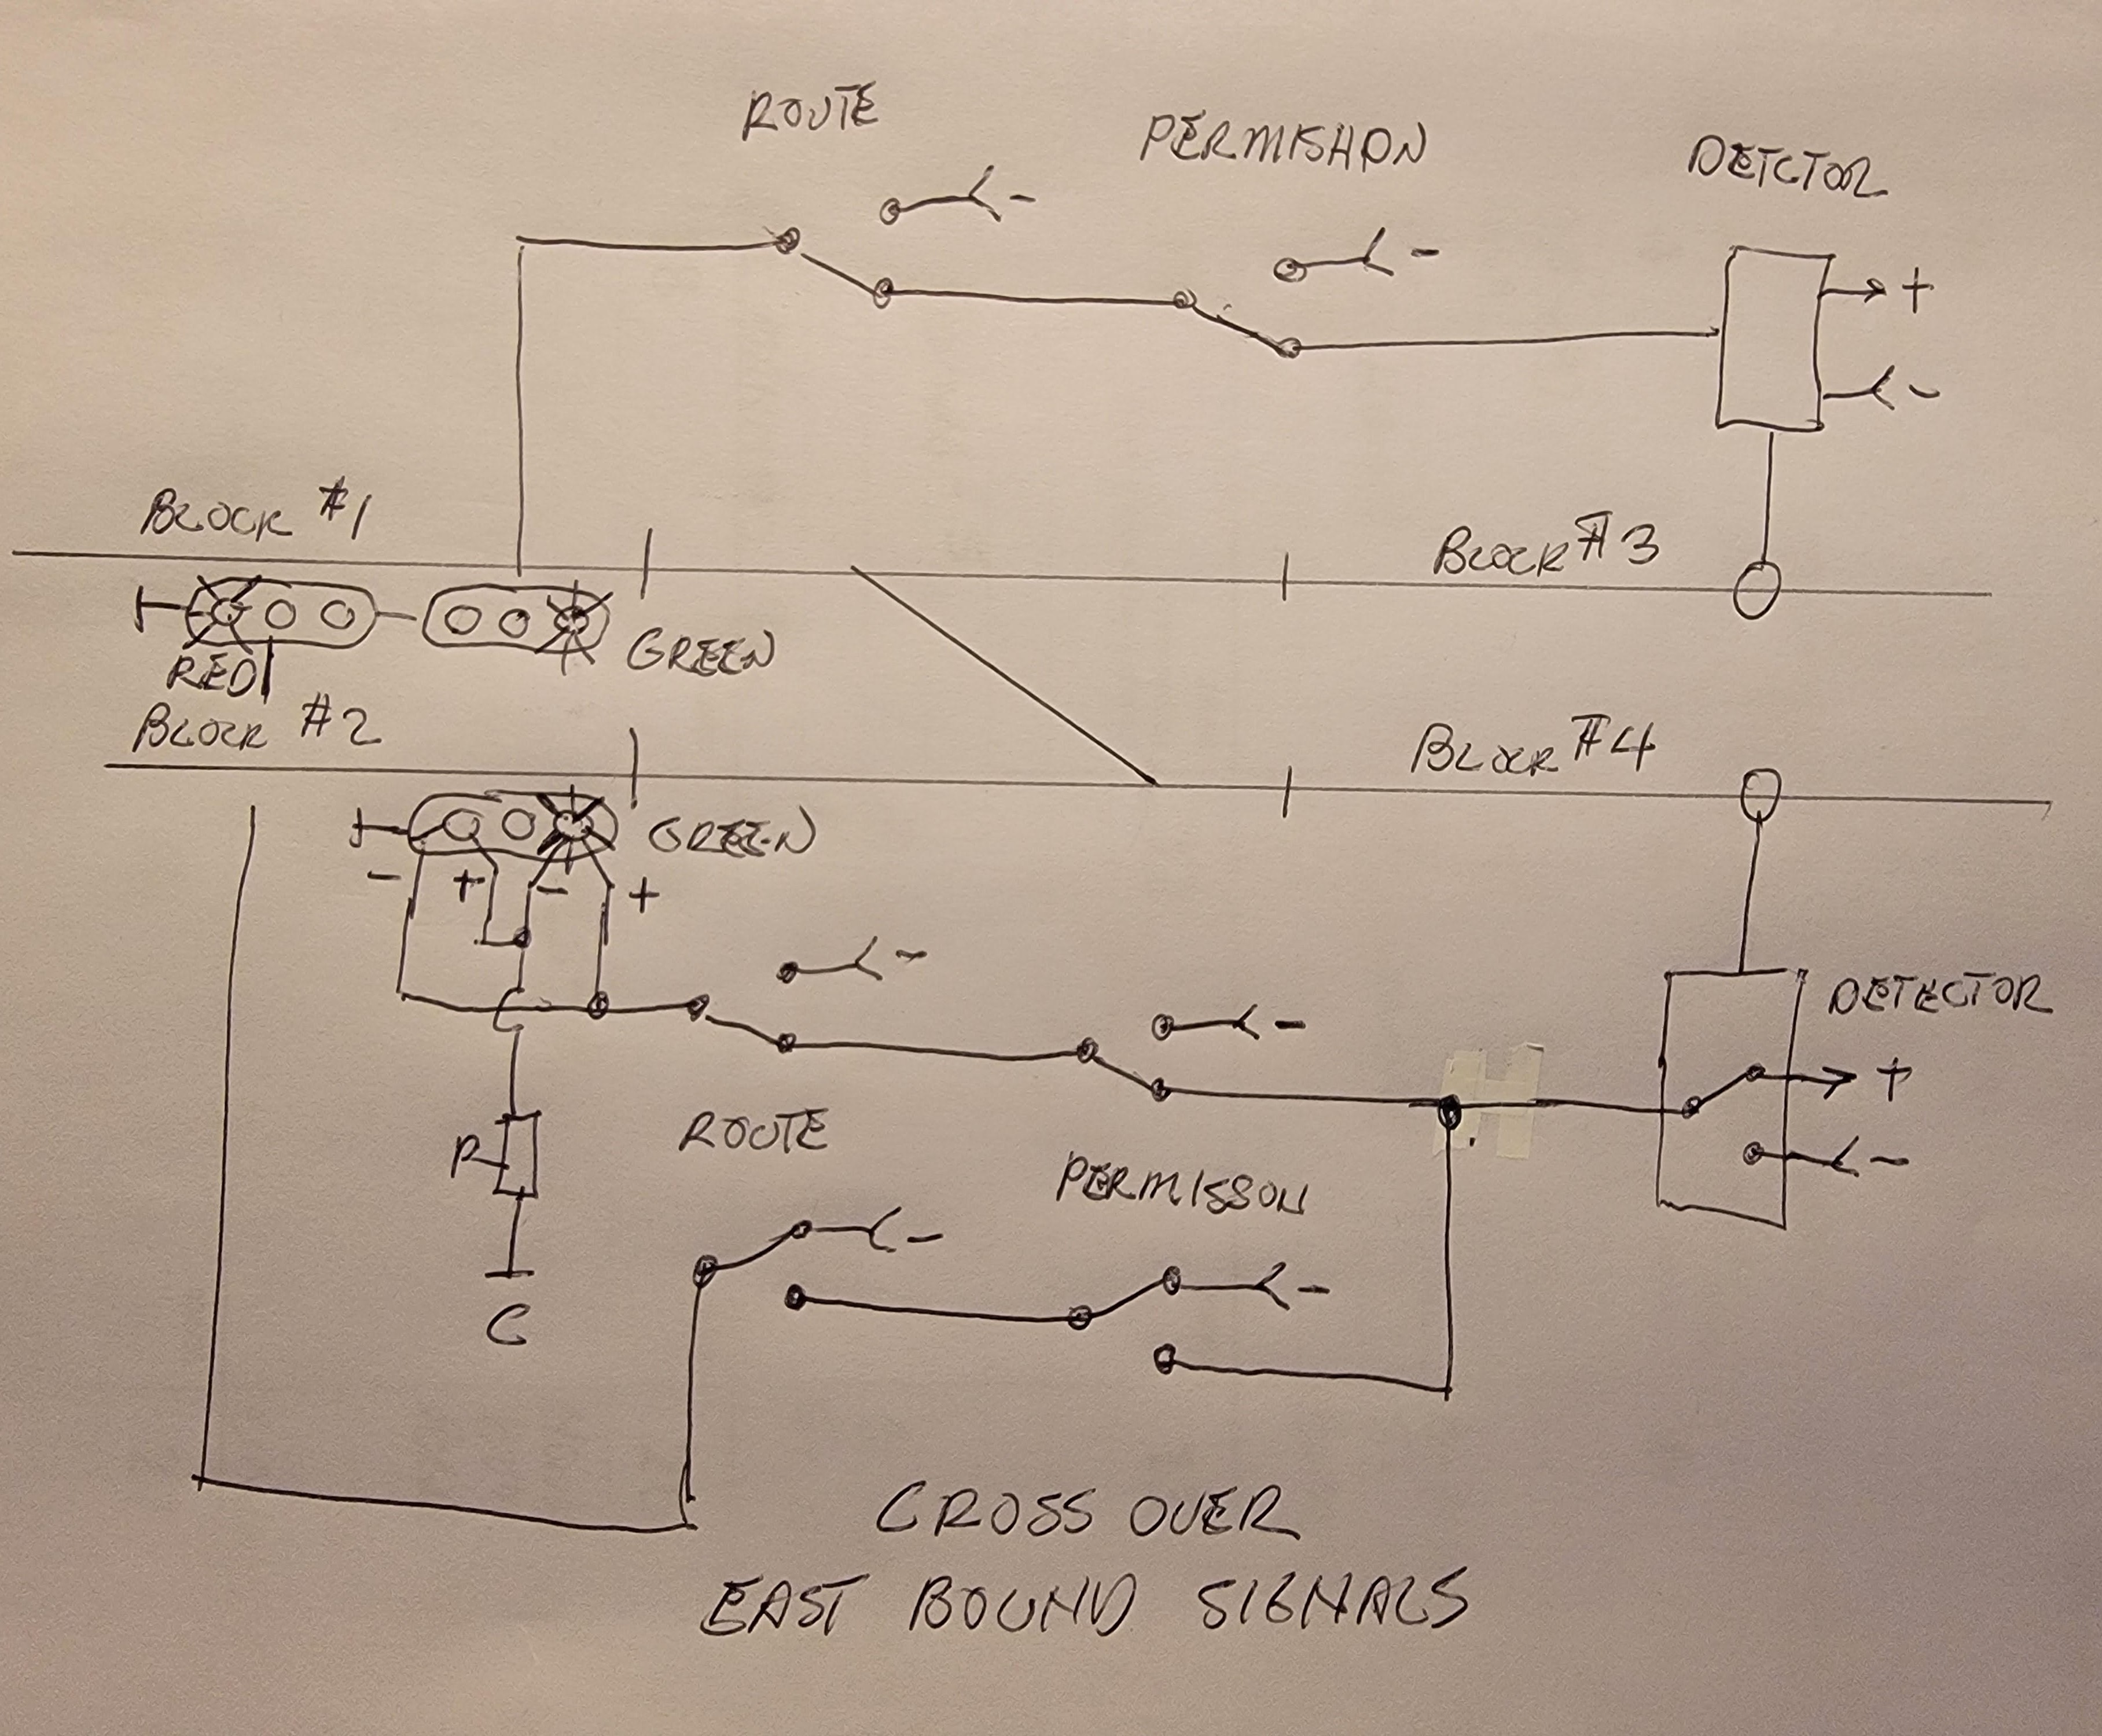 ROUTE
PERMISHON
DETCTOR
-
-
+
-
BLOCK #1
BLOCK #3
RED
GREEN
BLOCK #2
BLOCK #4
GREEN
- + - +
-
-
DETECTOR
+
-
R
ROUTE
PERMISSON
-
-
C
CROSS OVER
EAST BOUND SIGNALS